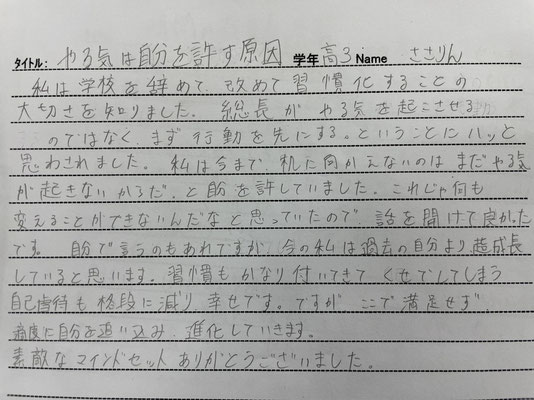 タイトル: やる気は自分を許す原因 学年 高3 Name ささりん
私は学校を辞めて、改めて習慣化することの
大切さを知りました。総長がやる気を起こさせる
のではなく、まず行動を先にする。ということにハッと
思わされました。私は今まで机に向かえないのはまだやる気
が起きないからだ、と自分を許していました。これじゃ何も
変えることができないんだなと思っていたので、話を聞けて良かった
です。自分で言うのもあれですが、今の私は過去の自分より超成長
していると思います。習慣もかなり付いてきてくせでしてしまう
自己虐待も格段に減り幸せです。ですがここで満足せず
適度に自分を追い込み、進化していきます。
素敵なマインドセットありがとうございました。